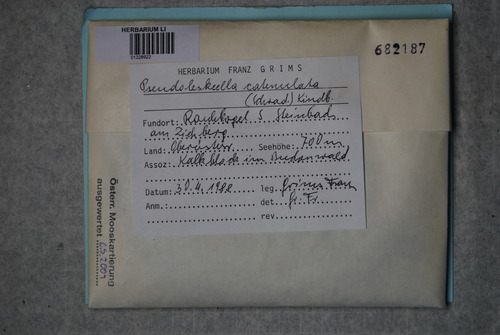 HERBARIUM LI
01228922
682187
HERBARIUM FRANZ GRIMS
Pseudoleskeella catenulata
(Schrad.) Kindb.
Fundort: S Steinbach
am Ziehberg
Land: Oberösterr. Seehöhe: 700 m
Assoz: Kalkblock im Buchenwald
Datum: 30.4. leg. Grims Franz
Anm. det. Gr. Fr.
rev.
Österr. Mooskartierung
ausgewertet